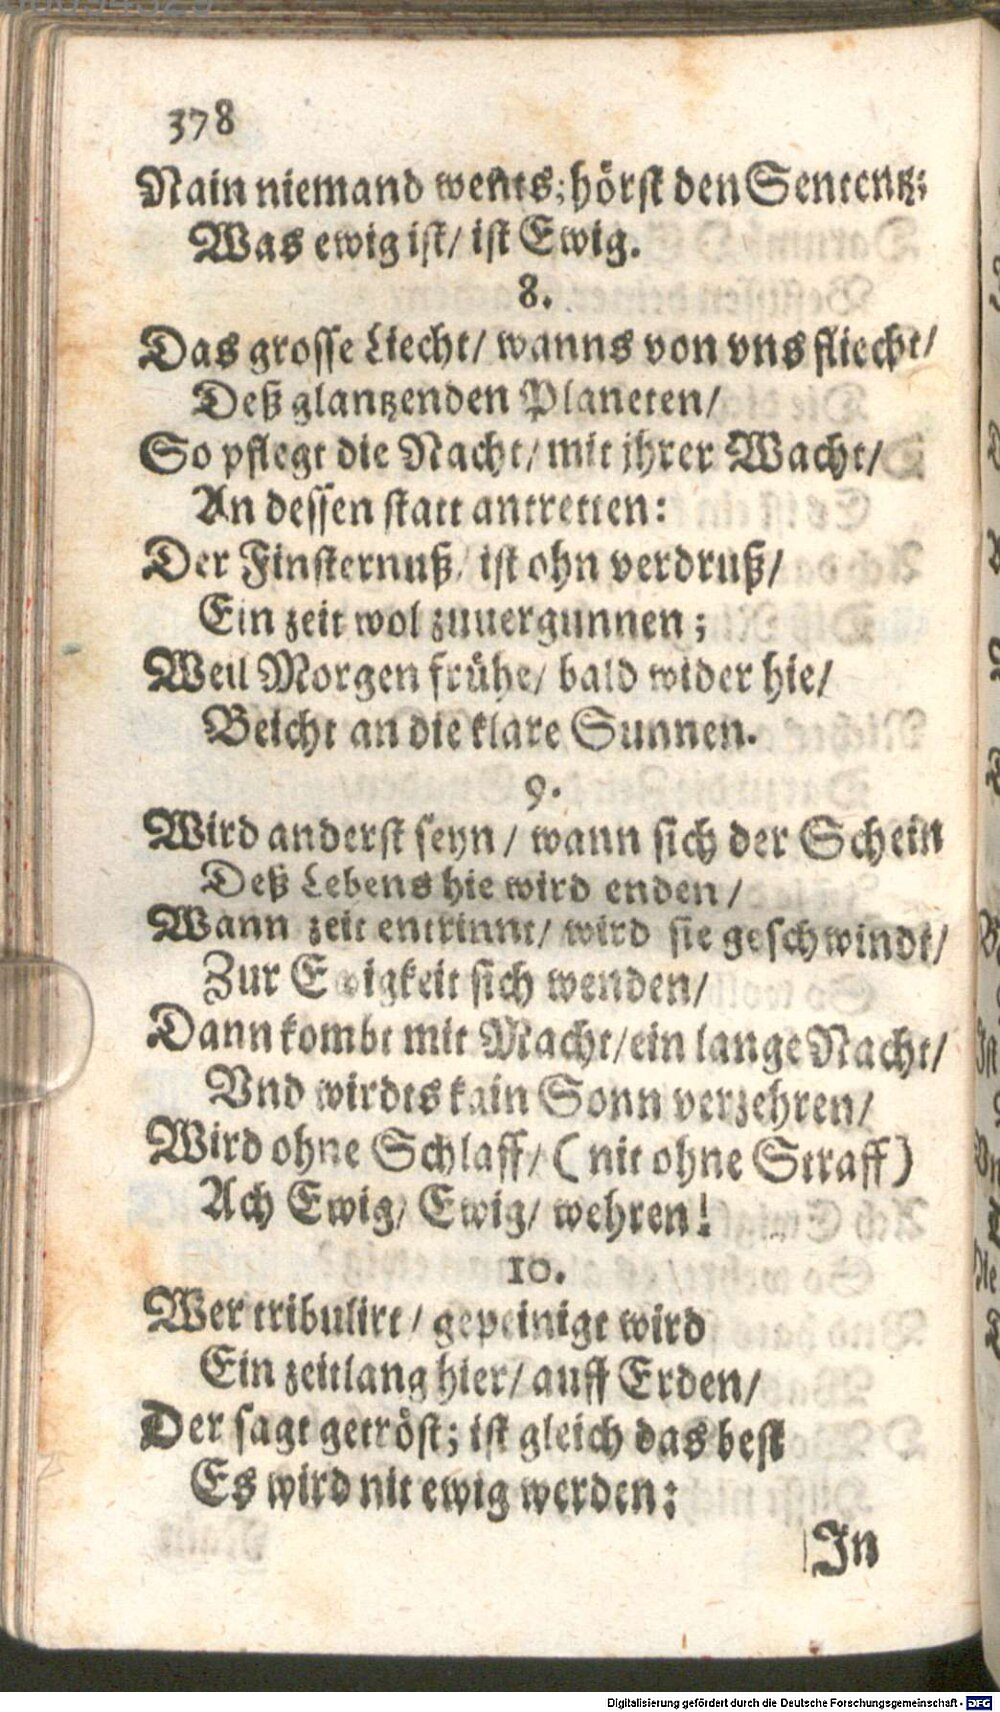 378
Nain niemand wents; hörst den Sententz:
Was ewig ist/ ist Ewig.
8.
Das grosse Liecht/ wanns von vns fliecht/
Deß glantzenden Planeten/
So pflegt die Nacht/ mit jhrer Wacht/
An dessen statt antretten:
Der Finsternuß/ ist ohn verdruß/
Ein zeit wol zuuergunnen;
Weil Morgen frühe/ bald wider hie/
Beicht an die klare Sunnen.
9.
Wird anderst seyn / wann sich der Schein
Deß Lebens hie wird enden /
Wann zeit entrinnt/ wird sie geschwindt/
Zur Ewigkeit sich wenden/
Dann kombt mit Macht/ ein lange Nacht/
Vnd wirdts kain Sonn verzehren/
Wird ohne Schlaff/ (nit ohne Straff)
Ach Ewig/ Ewig/ wehren!
10.
Wer tribulirt / gepeinigt wird
Ein zeitlang hier/ auff Erden/
Der sagt getröst; ist gleich das best
Es wird nit ewig werden:
In
Digitalisierung gefördert durch die Deutsche Forschungsgemeinschaft - DFG